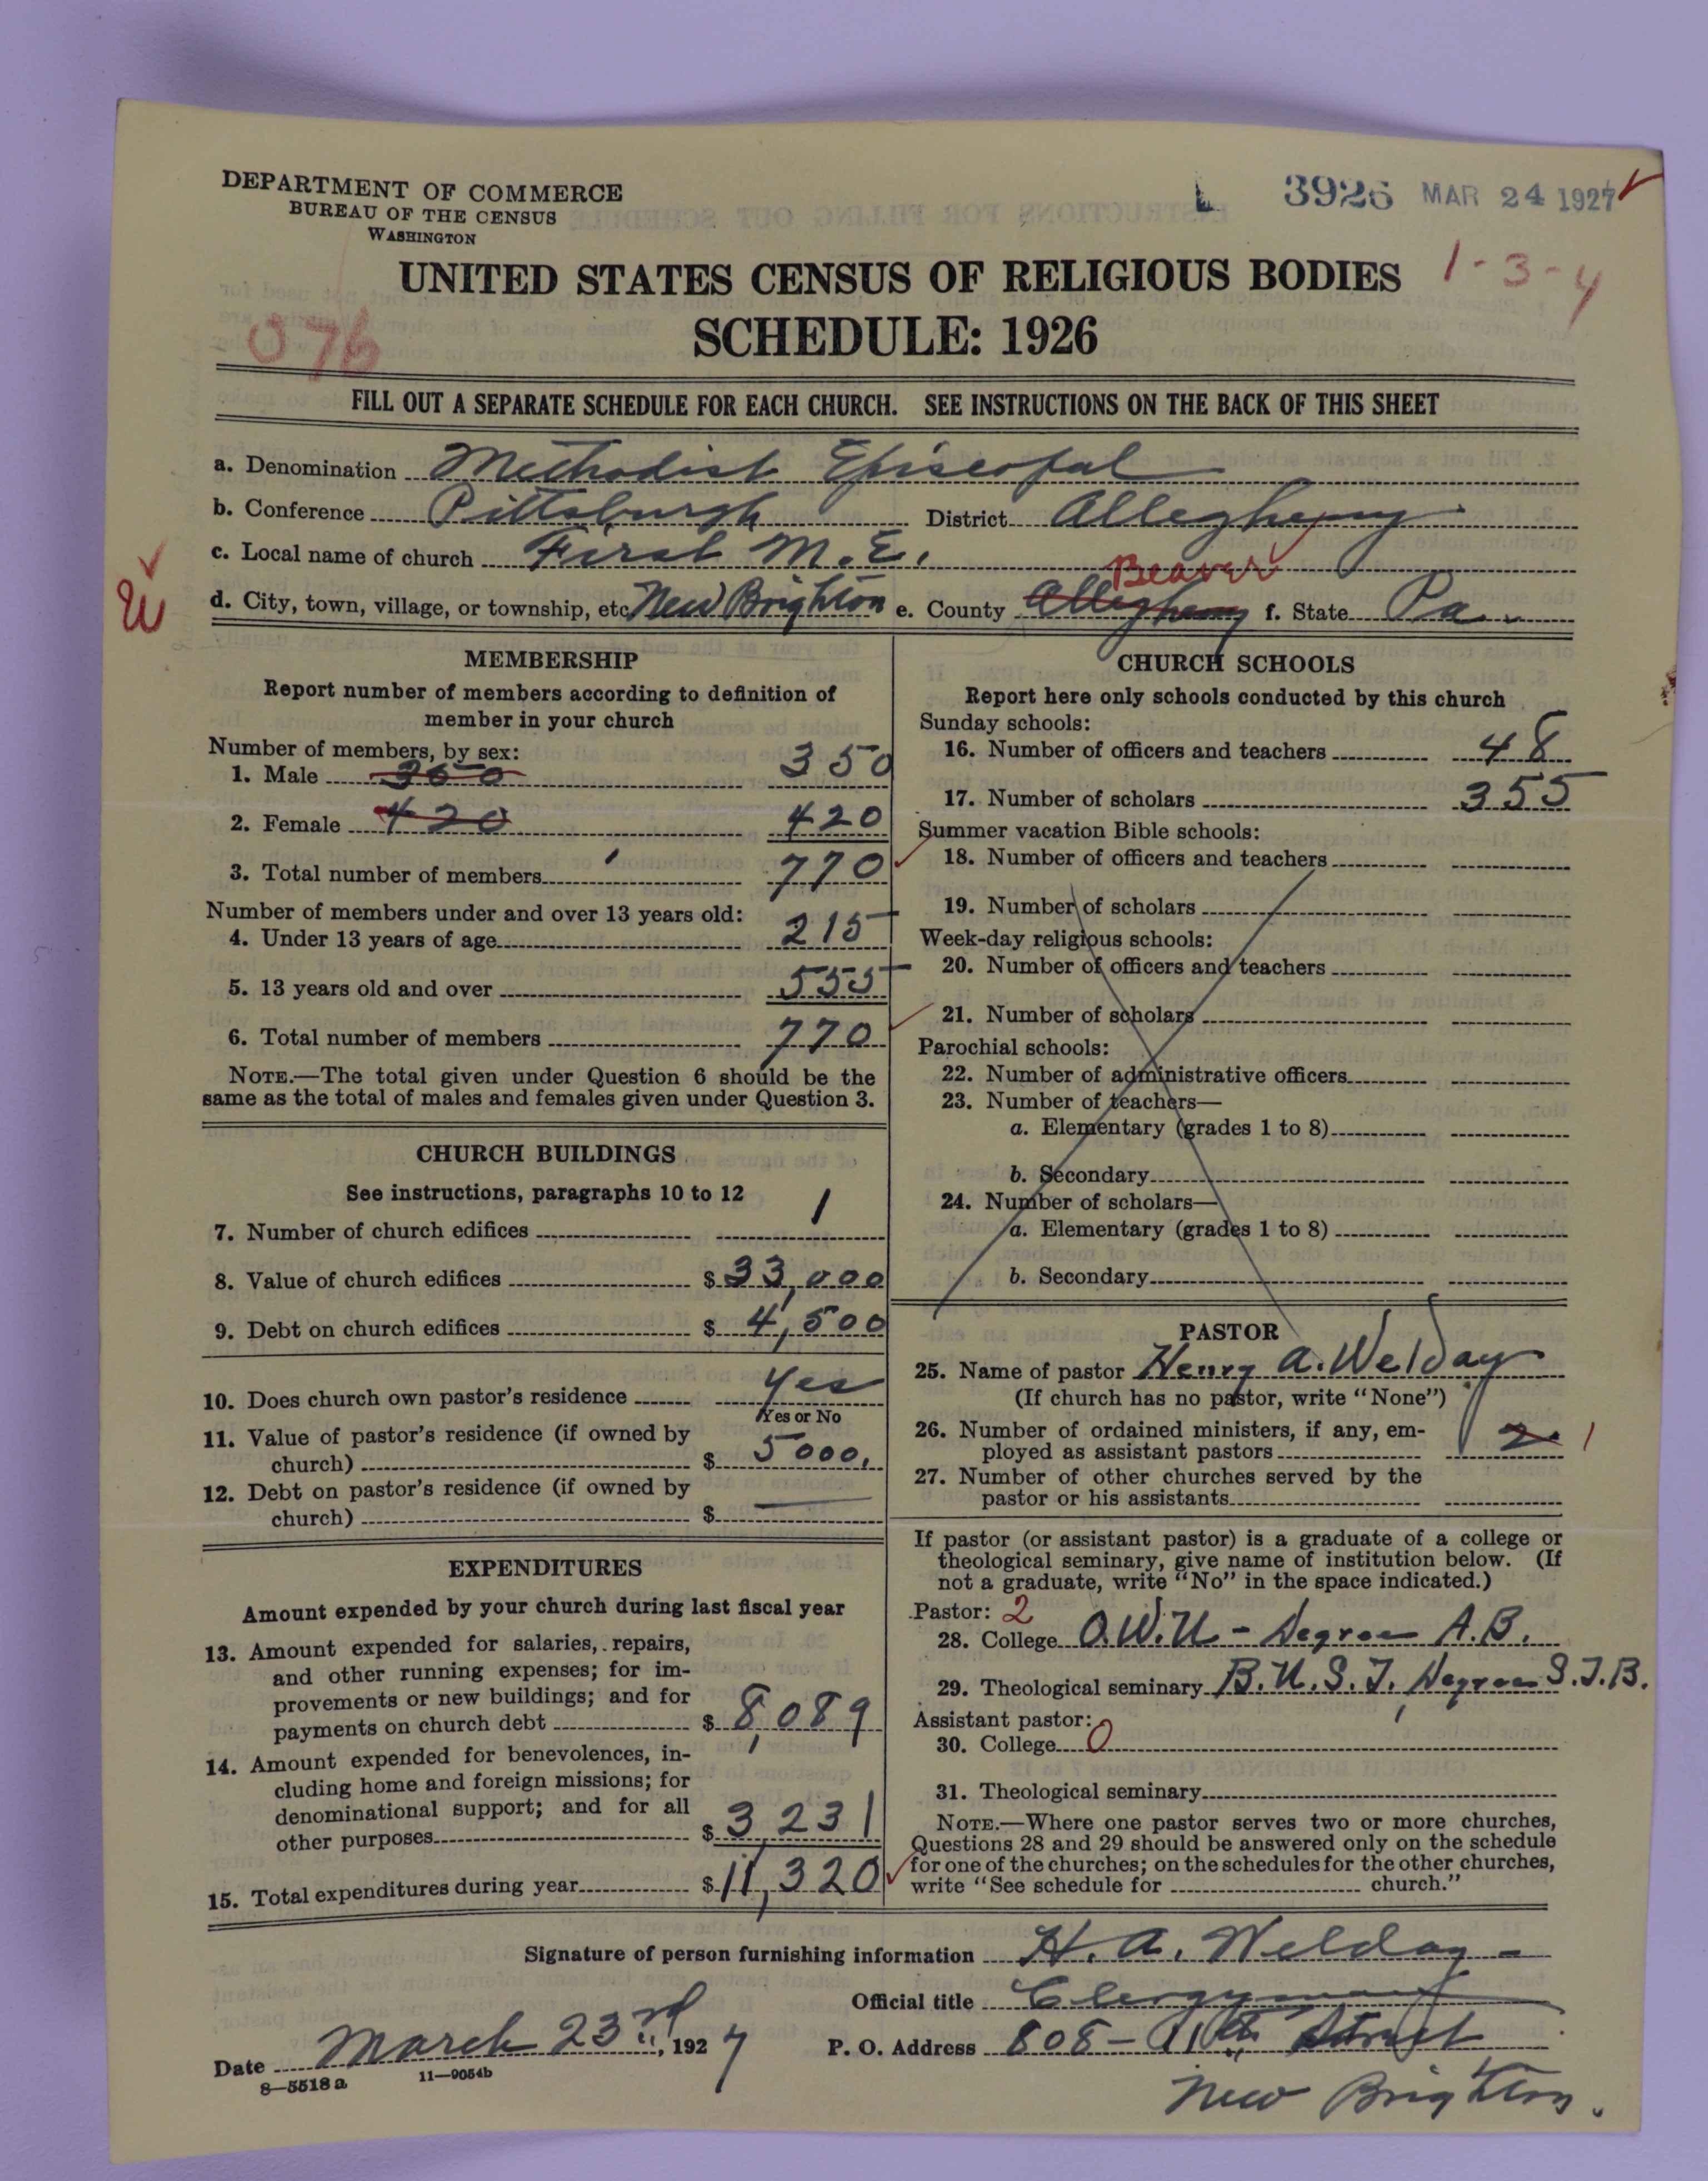 DEPARTMENT OF COMMERCE
BUREAU OF THE CENSUS
WASHINGTON
L 3926 MAR 24 1927
UNITED STATES CENSUS OF RELIGIOUS BODIES
1-3-4
SCHEDULE: 1926
076
FILL OUT A SEPARATE SCHEDULE FOR EACH CHURCH. SEE INSTRUCTIONS ON THE BACK OF THIS SHEET
a. Denomination Methodist Episcopal
b. Conference Pittsburgh District Allegheny
c. Local name of church First M.E.
Beaver
d. City, town, village, or township, etc New Brighton e. County Allegheny f. State Pa.
MEMBERSHIP
Report number of members according to definition of
member in your church
Number of members, by sex:
1. Male 350 350
2. Female 420 420
3. Total number of members 770
Number of members under and over 13 years old:
4. Under 13 years of age 215
5. 13 years old and over 555
6. Total number of members 770
NOTE.—The total given under Question 6 should be the
same as the total of males and females given under Question 3.
CHURCH BUILDINGS
See instructions, paragraphs 10 to 12
7. Number of church edifices 1
8. Value of church edifices $33,000
9. Debt on church edifices $4,500
10. Does church own pastor's residence Yes
Yes or No
11. Value of pastor's residence (if owned by
church) $5000.
12. Debt on pastor's residence (if owned by
church) $ —
EXPENDITURES
Amount expended by your church during last fiscal year
13. Amount expended for salaries, repairs,
and other running expenses; for im-
provements or new buildings; and for
payments on church debt $8,089
14. Amount expended for benevolences, in-
cluding home and foreign missions; for
denominational support; and for all
other purposes $3,231
15. Total expenditures during year $11,320
CHURCH SCHOOLS
Report here only schools conducted by this church
Sunday schools:
16. Number of officers and teachers 48
17. Number of scholars 355
Summer vacation Bible schools:
18. Number of officers and teachers
19. Number of scholars
Week-day religious schools:
20. Number of officers and teachers
21. Number of scholars
Parochial schools:
22. Number of administrative officers
23. Number of teachers—
a. Elementary (grades 1 to 8)
b. Secondary
24. Number of scholars—
a. Elementary (grades 1 to 8)
b. Secondary
PASTOR
25. Name of pastor Henry A. Welday
(If church has no pastor, write "None")
26. Number of ordained ministers, if any, em-
ployed as assistant pastors 2 1
27. Number of other churches served by the
pastor or his assistants
If pastor (or assistant pastor) is a graduate of a college or
theological seminary, give name of institution below. (If
not a graduate, write "No" in the space indicated.)
Pastor: 2
28. College O.W.U - Degree A.B.
29. Theological seminary B.U.S.T, Degree S.T.B.
Assistant pastor:
30. College 0
31. Theological seminary
NOTE.—Where one pastor serves two or more churches,
Questions 28 and 29 should be answered only on the schedule
for one of the churches; on the schedules for the other churches,
write "See schedule for church."
Signature of person furnishing information H. A. Welday
Official title Clergyman
Date March 23rd, 1927 P. O. Address 808 - 11th Street
8—5518 a 11—9054b
New Brighton.